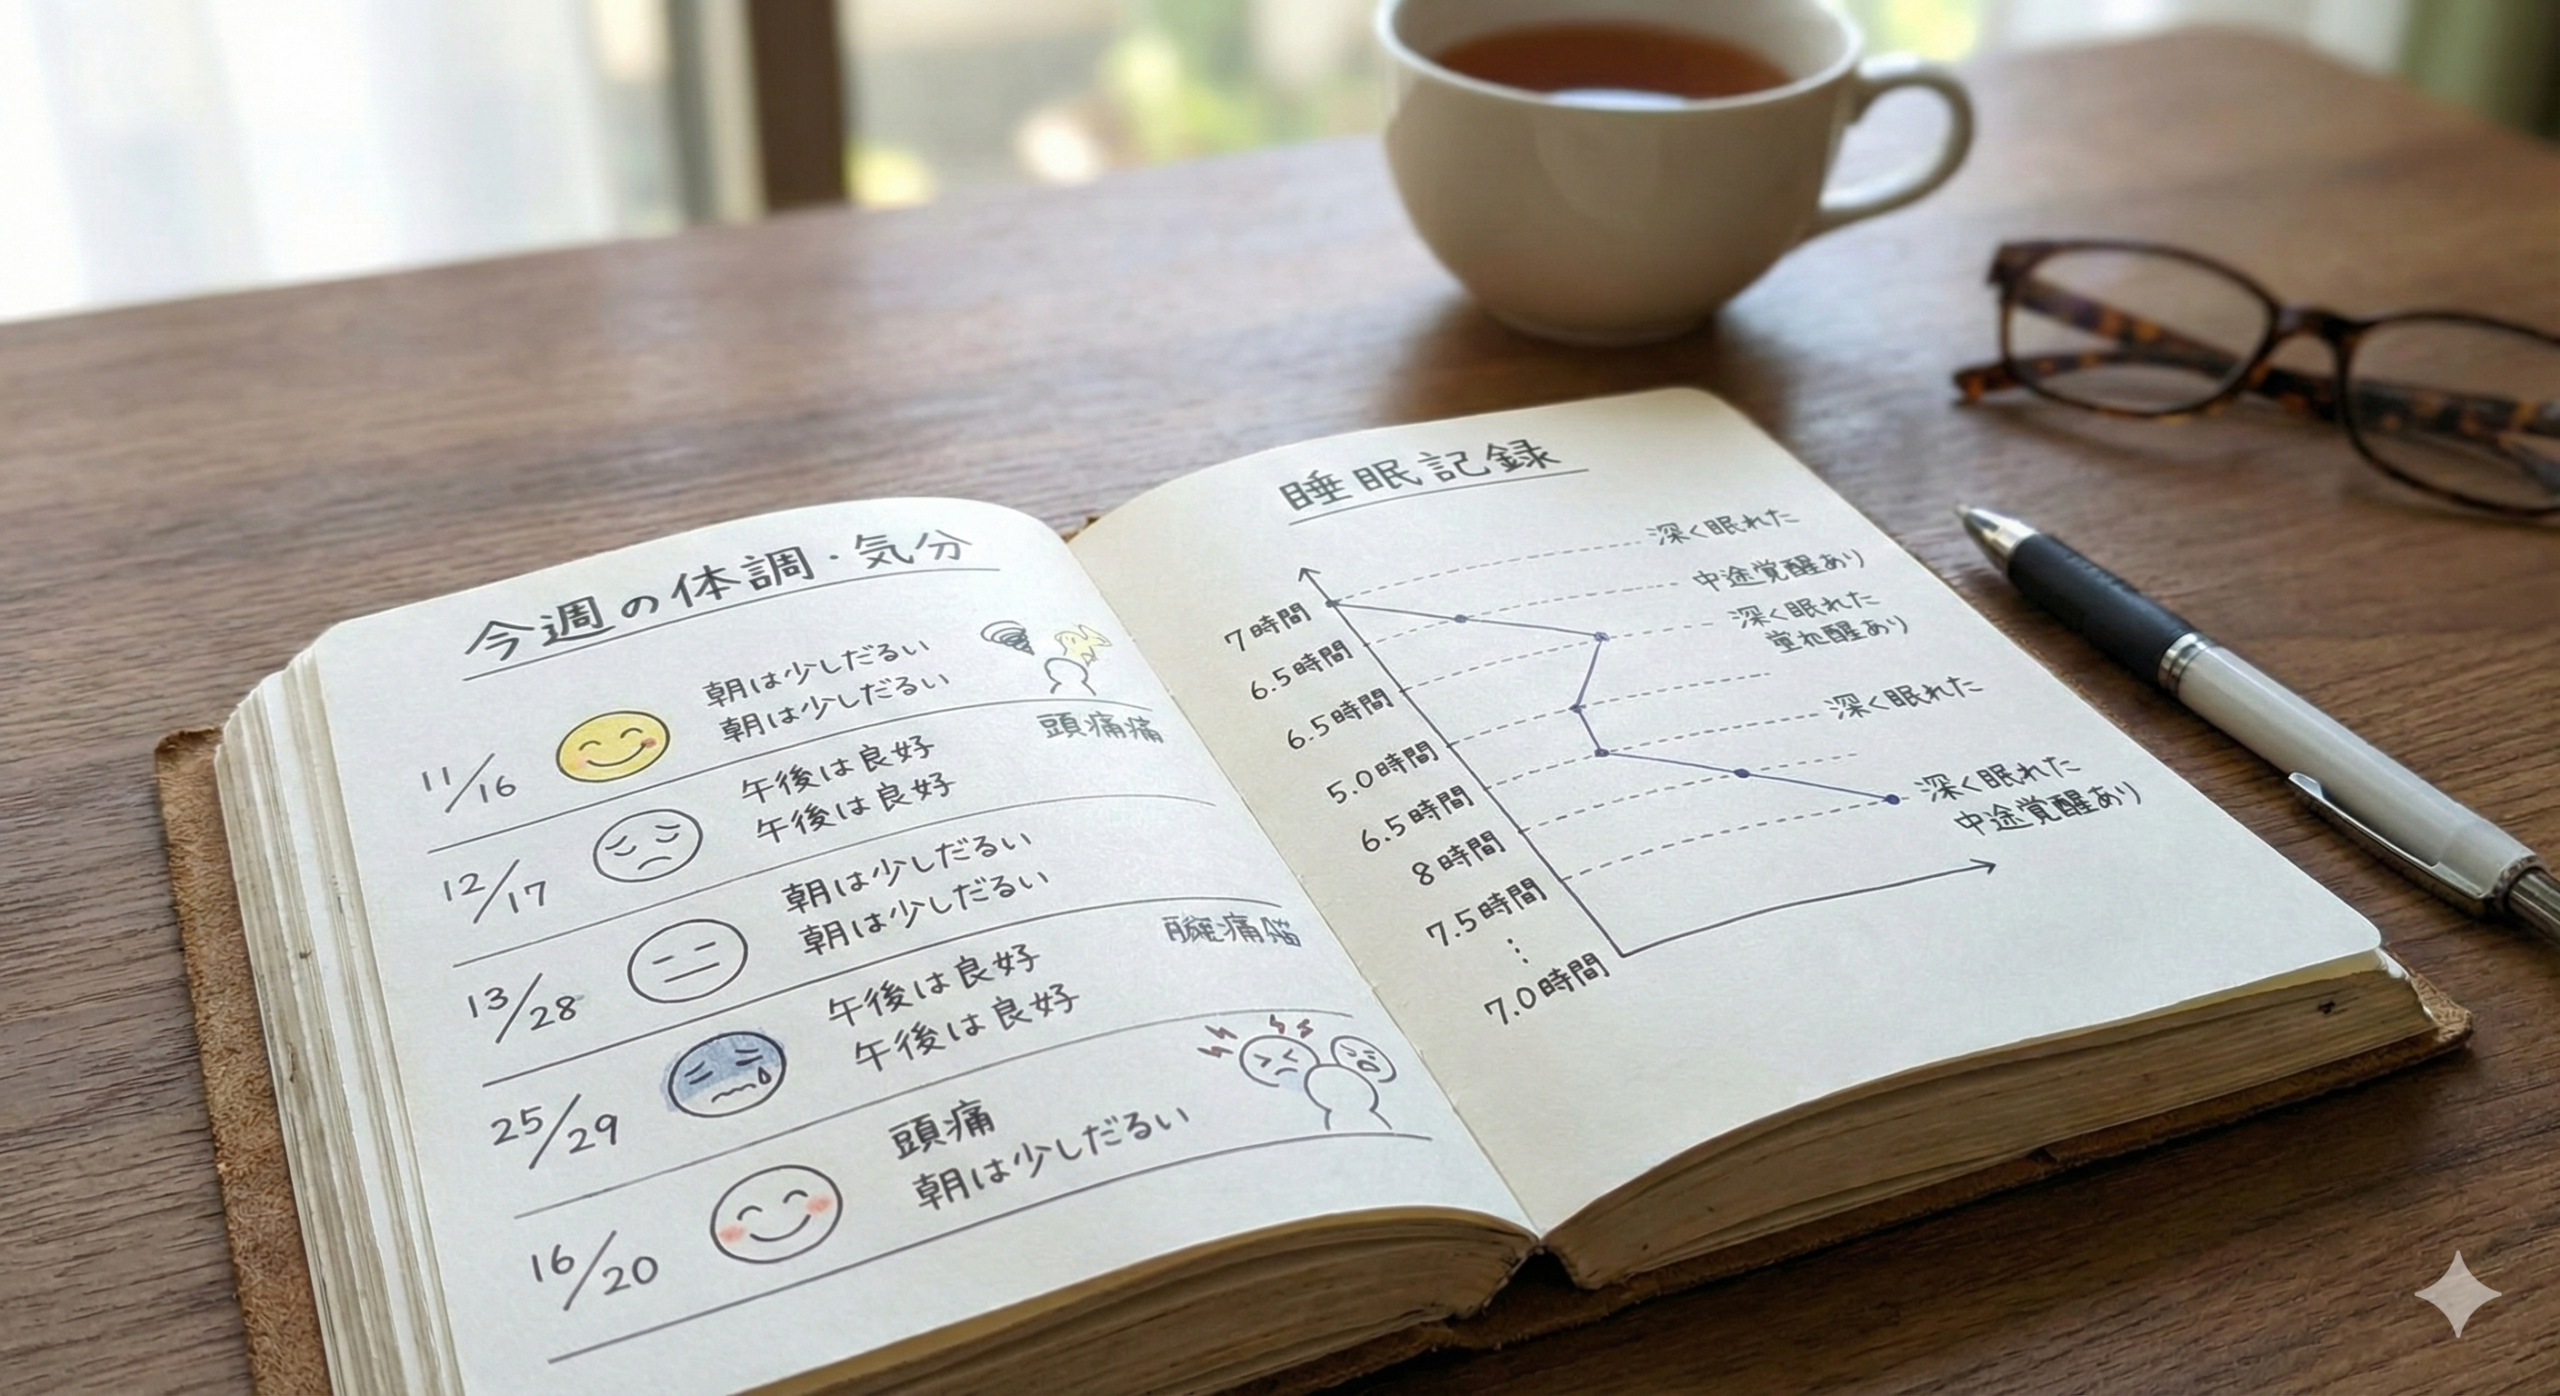 今週の体調・気分
11/16
朝は少しだるい
朝は少しだるい
頭痛痛
12/17
午後は良好
午後は良好
13/28
朝は少しだるい
朝は少しだるい
25/29
午後は良好
午後は良好
16/20
頭痛
朝は少しだるい
睡眠記録
7時間
6.5時間
6.5時間
5.0時間
6.5時間
8時間
7.5時間
⋮
7.0時間
深く眠れた
中途覚醒あり
深く眠れた
醒あり
深く眠れた
深く眠れた
中途覚醒あり